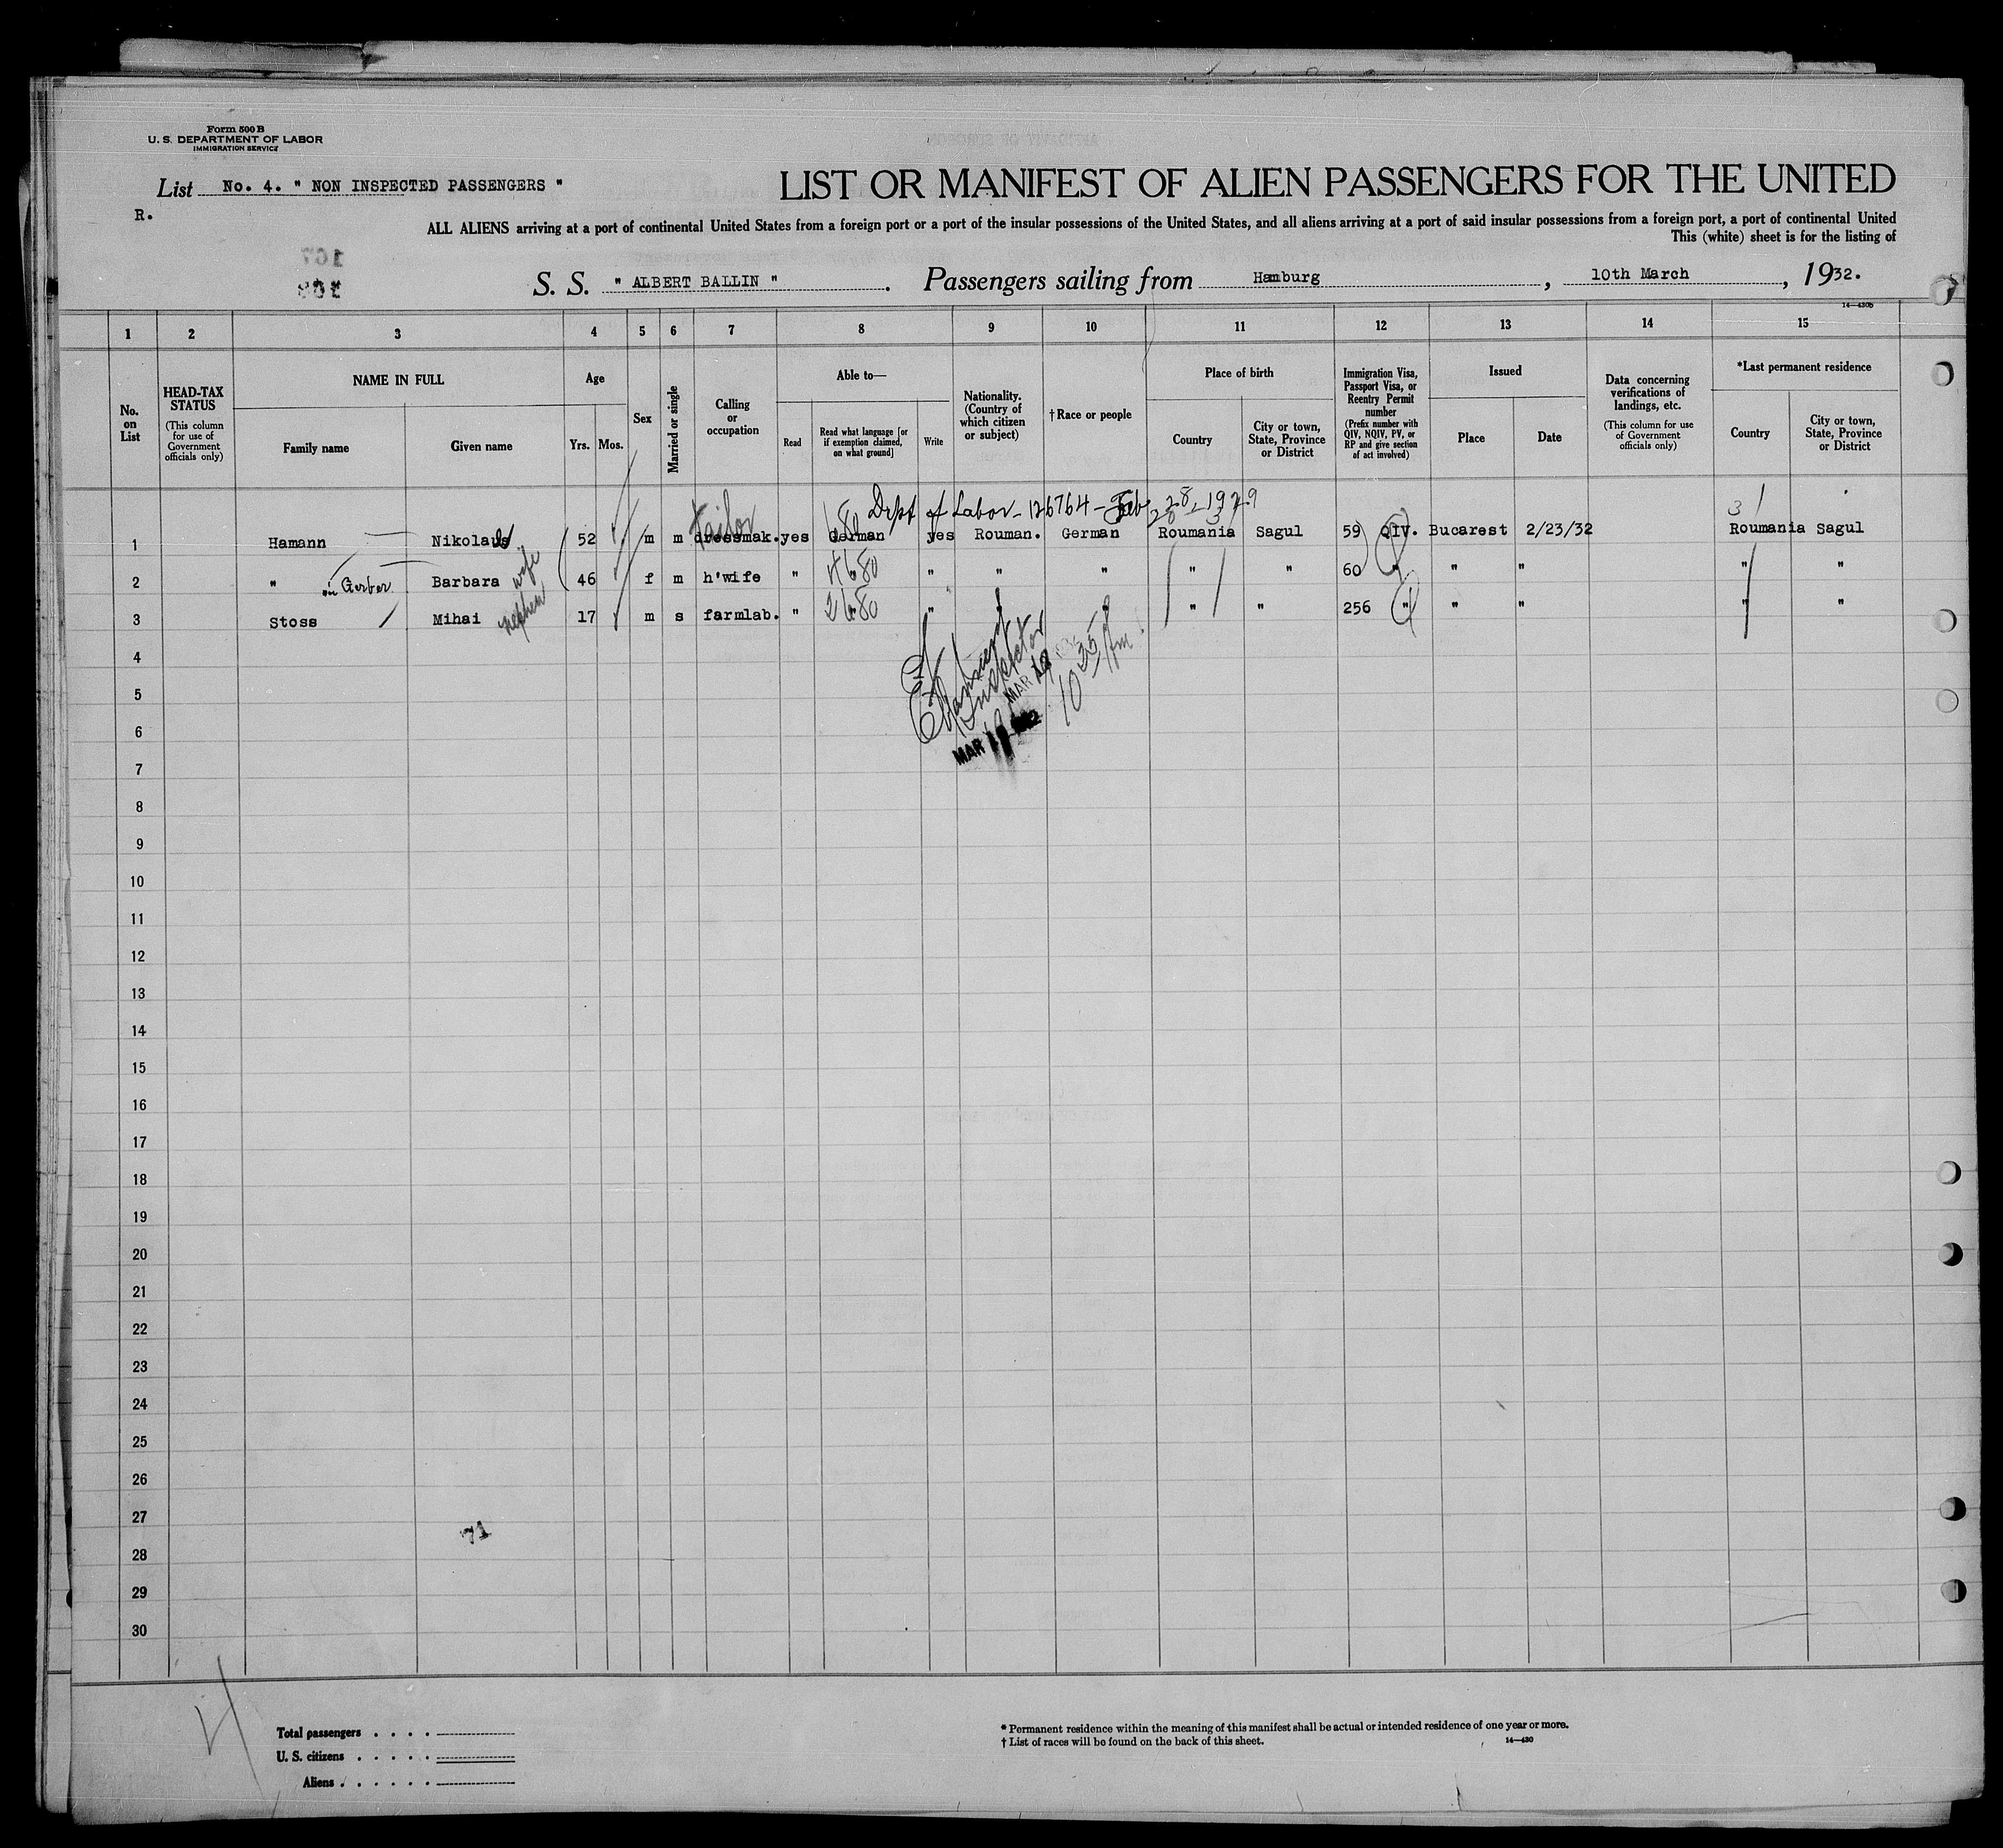 Form 500 B
U. S. DEPARTMENT OF LABOR
IMMIGRATION SERVICE
List No. 4. " NON INSPECTED PASSENGERS "
R.
LIST OR MANIFEST OF ALIEN PASSENGERS FOR THE UNITED
ALL ALIENS arriving at a port of continental United States from a foreign port or a port of the insular possessions of the United States, and all aliens arriving at a port of said insular possessions from a foreign port, a port of continental United
This (white) sheet is for the listing of
S. S. " ALBERT BALLIN ". Passengers sailing from Hamburg, 10th March, 1932.
14—430b
1 2 3 4 5 6 7 8 9 10 11 12 13 14 15
No. on List
HEAD-TAX STATUS (This column for use of Government officials only)
NAME IN FULL
Family name
Given name
Age
Yrs. Mos.
Sex
Married or single
Calling or occupation
Able to—
Read
Read what language [or if exemption claimed, on what ground]
Write
Nationality. (Country of which citizen or subject)
†Race or people
Place of birth
Country
City or town, State, Province or District
Immigration Visa, Passport Visa, or Reentry Permit number (Prefix number with QIV, NQIV, PV, or RP and give section of act involved)
Issued
Place
Date
Data concerning verifications of landings, etc. (This column for use of Government officials only)
*Last permanent residence
Country
City or town, State, Province or District
Dept of Labor - 126764 - Feb 28 - 1929
tailor
1 Hamann Nikolaus 52 m m dressmak. yes German yes Rouman. German Roumania Sagul 59 QIV. Bucarest 2/23/32 Roumania Sagul
2 " Gerber Barbara wife 46 f m h'wife " " " " " " 60 " " " " "
3 Stoss Mihai nephew 17 m s farmlab. " " " " " " " 256 " " " " "
Inspector
MAR
MAR
10 35 Am
4
5
6
7
8
9
10
11
12
13
14
15
16
17
18
19
20
21
22
23
24
25
26
27
28
29
30
Total passengers . . . .
U. S. citizens . . . . .
Aliens . . . . . .
* Permanent residence within the meaning of this manifest shall be actual or intended residence of one year or more.
† List of races will be found on the back of this sheet.
14—430